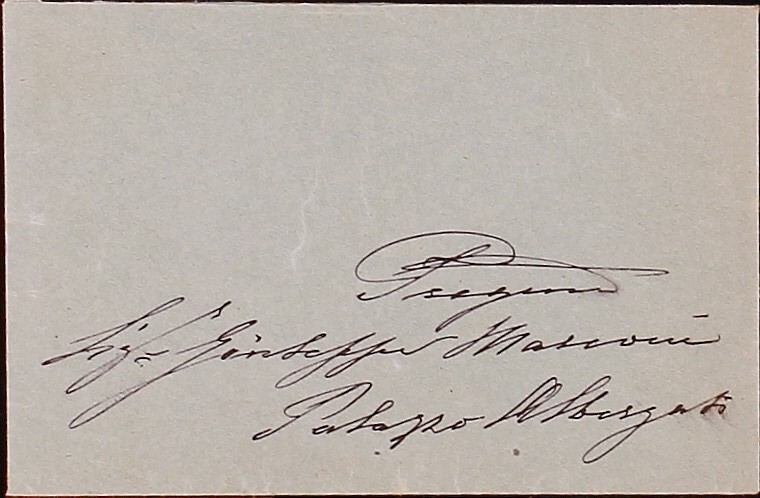 Pregmo
Sigr Giuseppe Marconi
Palazzo Albergati